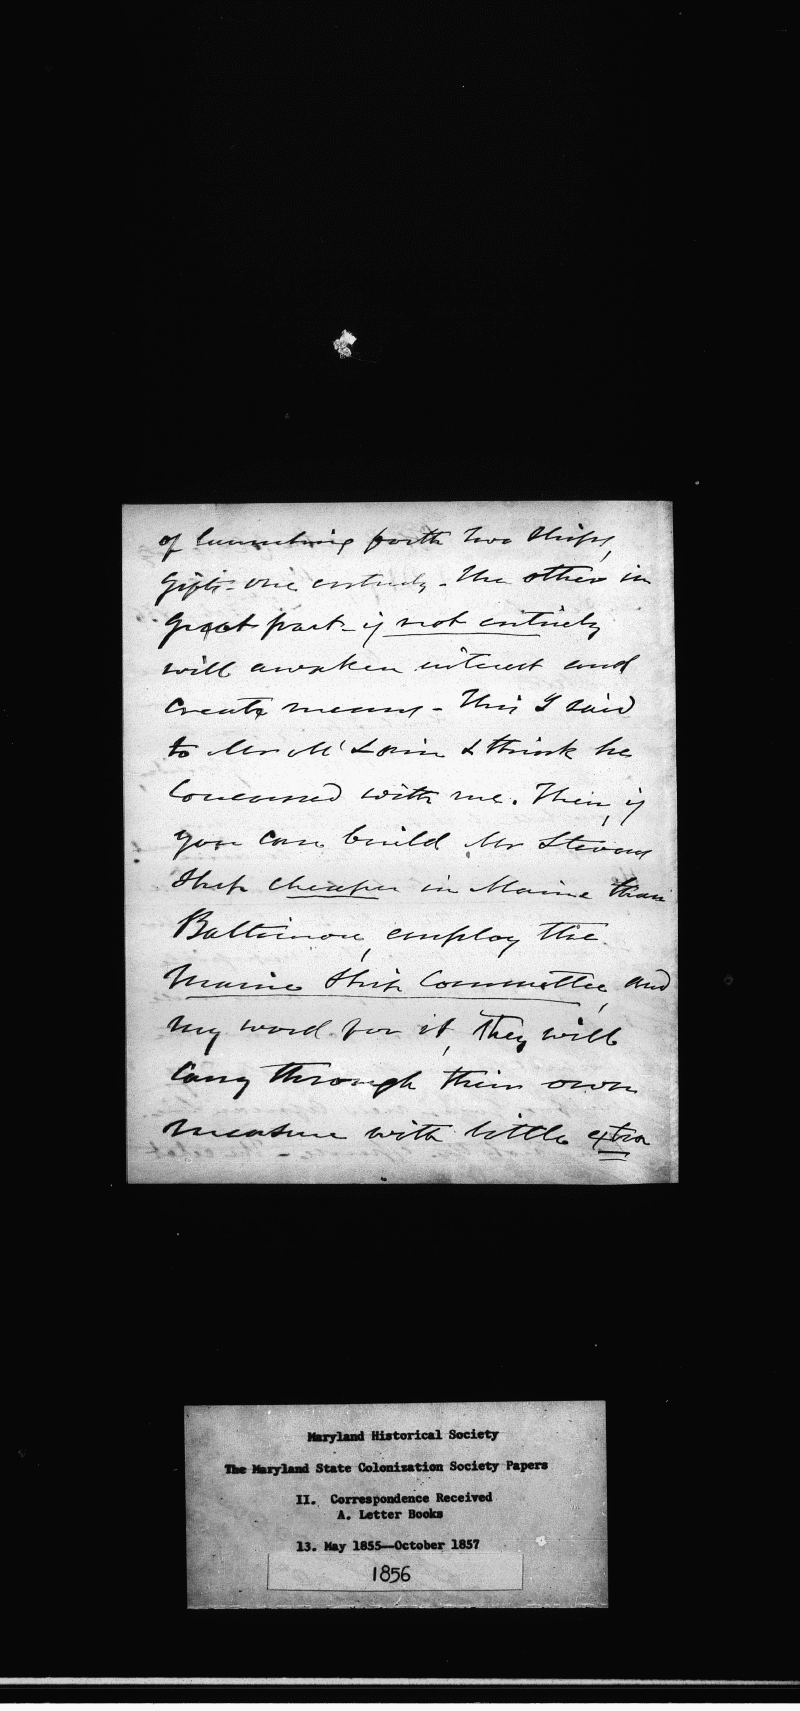 of launching forth two ships,
gifts - one entirely - the other in
great part - if not entirely
will awaken interest and
create means - This I said
to Mr McLain & think he
concurred with me. Then, if
you can build Mr Stevens
Ship cheaper in Maine than
Baltimore, employ the
Maine Ship Committee, and
my word for it, they will
carry through their own
measure with little extra
Maryland Historical Society
The Maryland State Colonization Society Papers
II. Correspondence Received
A. Letter Books
13. May 1855—October 1857
1856